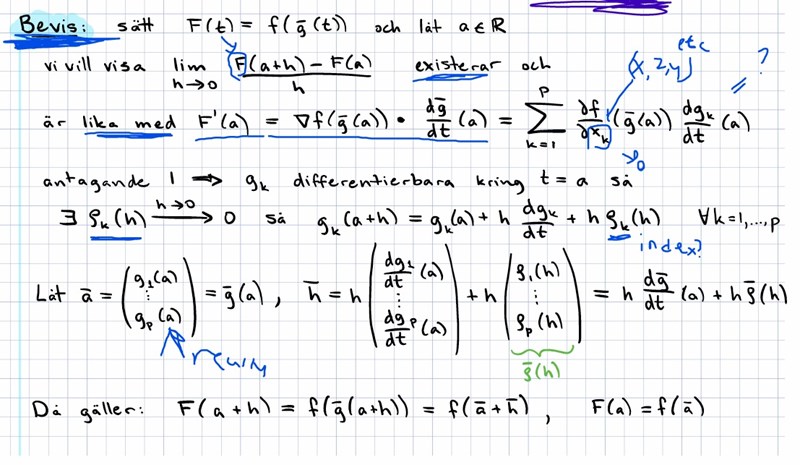 Bevis: sätt F(t) = f(ḡ(t)) och låt a ∈ ℝ
etc
vi vill visa lim h→0 F(a+h) − F(a) / h existerar och (x, z, y) ?
är lika med F'(a) = ∇f(ḡ(a)) • dḡ/dt (a) = ∑ k=1 p ∂f/∂x_k (ḡ(a)) dg_k/dt (a)
antagande 1 ⟹ g_k differentierbara kring t = a så
∃ ρ_k(h) h→0 ⟶ 0 så g_k(a+h) = g_k(a) + h dg_k/dt + h ρ_k(h) ∀k=1,...,p
index?
Låt ā = (g_1(a) ⋮ g_p(a)) = ḡ(a), h̄ = h (dg_1/dt (a) ⋮ dg_p/dt (a)) + h (ρ_1(h) ⋮ ρ_p(h)) = h dḡ/dt (a) + h ρ̄(h)
ρ̄(h)
Då gäller: F(a+h) = f(ḡ(a+h)) = f(ā+h̄), F(a) = f(ā)